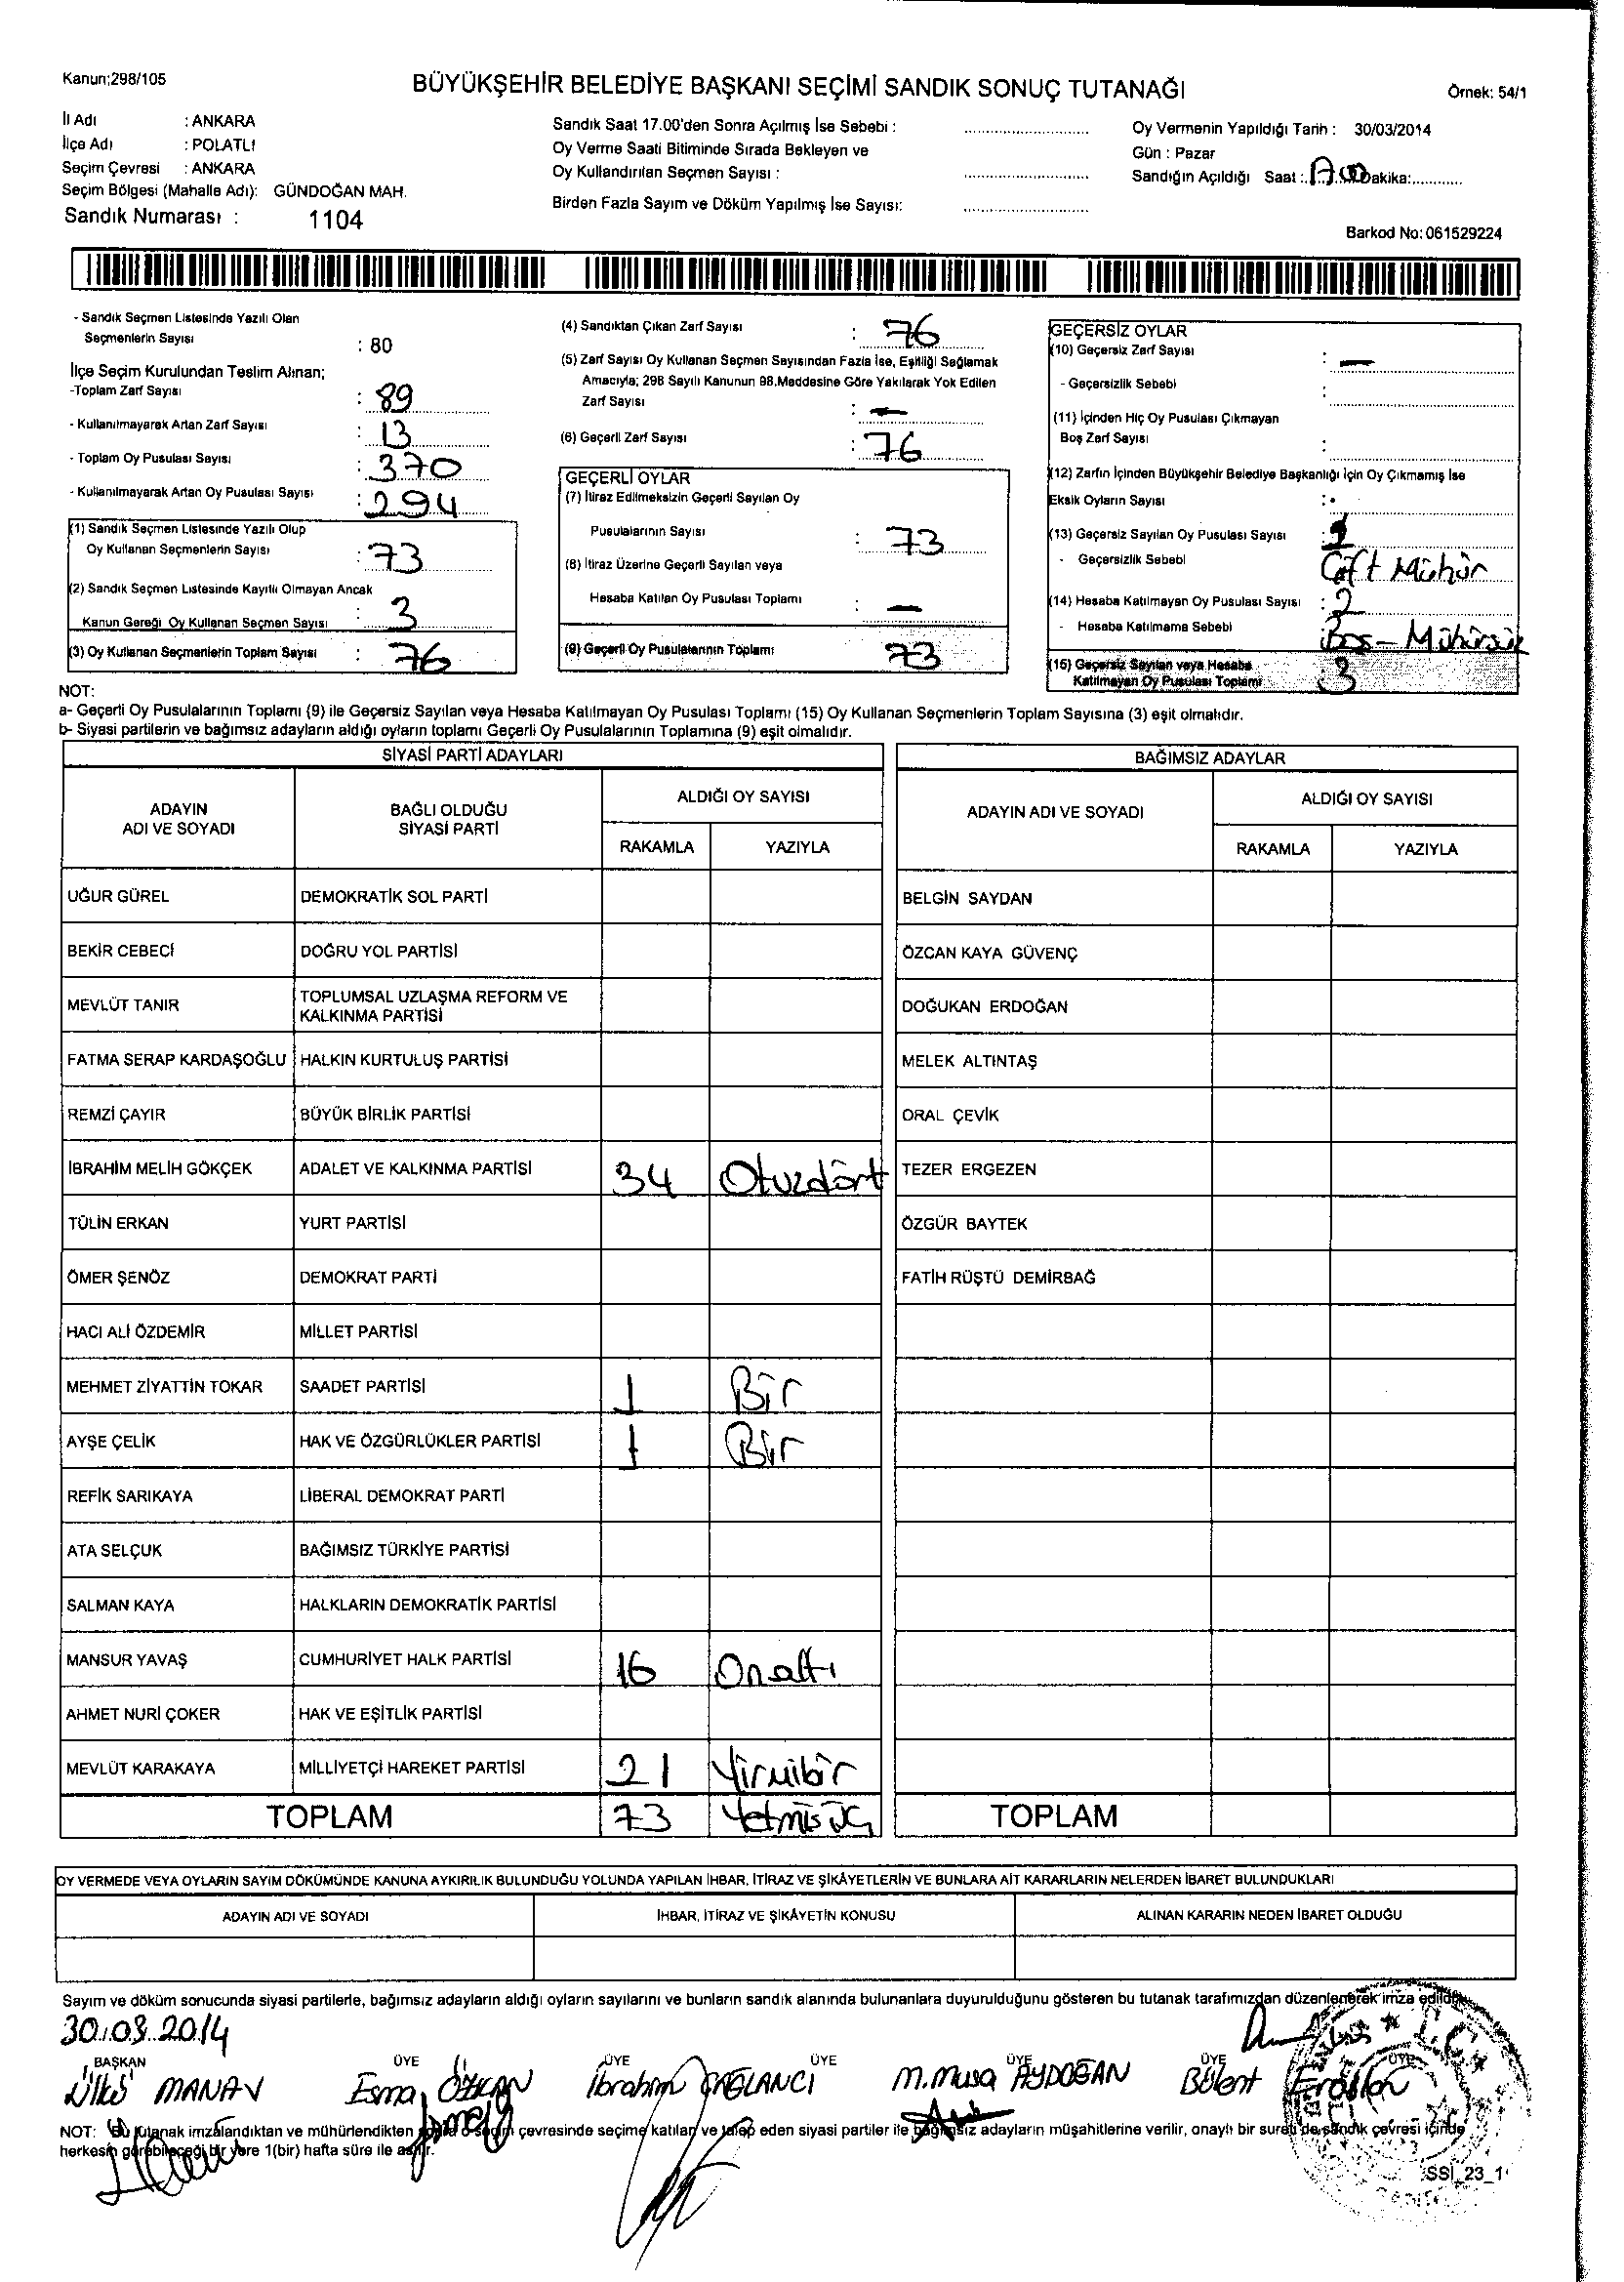 Kanun;298/105
BÜYÜKŞEHİR BELEDİYE BAŞKANI SEÇİMİ SANDIK SONUÇ TUTANAĞI
Örnek: 54/1
İl Adı : ANKARA
İlçe Adı : POLATLI
Seçim Çevresi : ANKARA
Seçim Bölgesi (Mahalle Adı): GÜNDOĞAN MAH.
Sandık Numarası : 1104
Sandık Saat 17.00'den Sonra Açılmış İse Sebebi :
Oy Verme Saati Bitiminde Sırada Bekleyen ve
Oy Kullandırılan Seçmen Sayısı :
Birden Fazla Sayım ve Döküm Yapılmış İse Sayısı:
Oy Vermenin Yapıldığı Tarih : 30/03/2014
Gün : Pazar
Sandığın Açıldığı Saat : Dakika:
Barkod No: 061529224
- Sandık Seçmen Listesinde Yazılı Olan
Seçmenlerin Sayısı : 80
İlçe Seçim Kurulundan Teslim Alınan;
-Toplam Zarf Sayısı : 89
- Kullanılmayarak Artan Zarf Sayısı : 13
- Toplam Oy Pusulası Sayısı : 370
- Kullanılmayarak Artan Oy Pusulası Sayısı : 294
(1) Sandık Seçmen Listesinde Yazılı Olup
Oy Kullanan Seçmenlerin Sayısı : 73
(2) Sandık Seçmen Listesinde Kayıtlı Olmayan Ancak
Kanun Gereği Oy Kullanan Seçmen Sayısı : 3
(3) Oy Kullanan Seçmenlerin Toplam Sayısı : 76
(4) Sandıktan Çıkan Zarf Sayısı : 76
(5) Zarf Sayısı Oy Kullanan Seçmen Sayısından Fazla ise, Eşitliği Sağlamak
Amacıyla; 298 Sayılı Kanunun 98.Maddesine Göre Yakılarak Yok Edilen
Zarf Sayısı : —
(6) Geçerli Zarf Sayısı : 76
GEÇERLİ OYLAR
(7) İtiraz Edilmeksizin Geçerli Sayılan Oy
Pusulalarının Sayısı : 73
(8) İtiraz Üzerine Geçerli Sayılan veya
Hesaba Katılan Oy Pusulası Toplamı : —
(9) Geçerli Oy Pusulalarının Toplamı 73
GEÇERSİZ OYLAR
(10) Geçersiz Zarf Sayısı : —
- Geçersizlik Sebebi :
(11) İçinden Hiç Oy Pusulası Çıkmayan
Boş Zarf Sayısı :
(12) Zarfın İçinden Büyükşehir Belediye Başkanlığı İçin Oy Çıkmamış İse
Eksik Oyların Sayısı :
(13) Geçersiz Sayılan Oy Pusulası Sayısı : 1
- Geçersizlik Sebebi Çift Mühür
(14) Hesaba Katılmayan Oy Pusulası Sayısı : 2
- Hesaba Katılmama Sebebi Boş - Mühürsüz
(15) Geçersiz Sayılan veya Hesaba
Katılmayan Oy Pusulası Toplamı 3
NOT:
a- Geçerli Oy Pusulalarının Toplamı (9) ile Geçersiz Sayılan veya Hesaba Katılmayan Oy Pusulası Toplamı (15) Oy Kullanan Seçmenlerin Toplam Sayısına (3) eşit olmalıdır.
b- Siyasi partilerin ve bağımsız adayların aldığı oyların toplamı Geçerli Oy Pusulalarının Toplamına (9) eşit olmalıdır.
SİYASİ PARTİ ADAYLARI
ADAYIN ADI VE SOYADI BAĞLI OLDUĞU SİYASİ PARTİ ALDIĞI OY SAYISI
RAKAMLA YAZIYLA
UĞUR GÜREL DEMOKRATİK SOL PARTİ
BEKİR CEBECİ DOĞRU YOL PARTİSİ
MEVLÜT TANIR TOPLUMSAL UZLAŞMA REFORM VE KALKINMA PARTİSİ
FATMA SERAP KARDAŞOĞLU HALKIN KURTULUŞ PARTİSİ
REMZİ ÇAYIR BÜYÜK BİRLİK PARTİSİ
İBRAHİM MELİH GÖKÇEK ADALET VE KALKINMA PARTİSİ 34 Otuzdört
TÜLİN ERKAN YURT PARTİSİ
ÖMER ŞENÖZ DEMOKRAT PARTİ
HACI ALİ ÖZDEMİR MİLLET PARTİSİ
MEHMET ZİYATTİN TOKAR SAADET PARTİSİ 1 Bir
AYŞE ÇELİK HAK VE ÖZGÜRLÜKLER PARTİSİ 1 Bir
REFİK SARIKAYA LİBERAL DEMOKRAT PARTİ
ATA SELÇUK BAĞIMSIZ TÜRKİYE PARTİSİ
SALMAN KAYA HALKLARIN DEMOKRATİK PARTİSİ
MANSUR YAVAŞ CUMHURİYET HALK PARTİSİ 16 Onaltı
AHMET NURİ ÇOKER HAK VE EŞİTLİK PARTİSİ
MEVLÜT KARAKAYA MİLLİYETÇİ HAREKET PARTİSİ 21 Yirmibir
TOPLAM 73 Yetmişüç
BAĞIMSIZ ADAYLAR
ADAYIN ADI VE SOYADI ALDIĞI OY SAYISI
RAKAMLA YAZIYLA
BELGİN SAYDAN
ÖZCAN KAYA GÜVENÇ
DOĞUKAN ERDOĞAN
MELEK ALTINTAŞ
ORAL ÇEVİK
TEZER ERGEZEN
ÖZGÜR BAYTEK
FATİH RÜŞTÜ DEMİRBAĞ
TOPLAM
OY VERMEDE VEYA OYLARIN SAYIM DÖKÜMÜNDE KANUNA AYKIRILIK BULUNDUĞU YOLUNDA YAPILAN İHBAR, İTİRAZ VE ŞİKÂYETLERİN VE BUNLARA AİT KARARLARIN NELERDEN İBARET BULUNDUKLARI
ADAYIN ADI VE SOYADI İHBAR, İTİRAZ VE ŞİKÂYETİN KONUSU ALINAN KARARIN NEDEN İBARET OLDUĞU
Sayım ve döküm sonucunda siyasi partilerle, bağımsız adayların aldığı oyların sayılarını ve bunların sandık alanında bulunanlara duyurulduğunu gösteren bu tutanak tarafımızdan düzenlenerek imza edildi.
30.03.2014
BAŞKAN ÜYE ÜYE ÜYE ÜYE ÜYE ÜYE
Ülkü MANAV Esma ÖZKAN İbrahim ÇAĞLANCI M.Musa AYDOĞAN Bülent
NOT: Bu tutanak imzalandıktan ve mühürlendikten sonra o seçim çevresinde seçime katılan ve talep eden siyasi partiler ile bağımsız adayların müşahitlerine verilir, onaylı bir sureti de sandık çevresi içinde
herkesin görebileceği bir yere 1(bir) hafta süre ile asılır.
SSİ_23_1